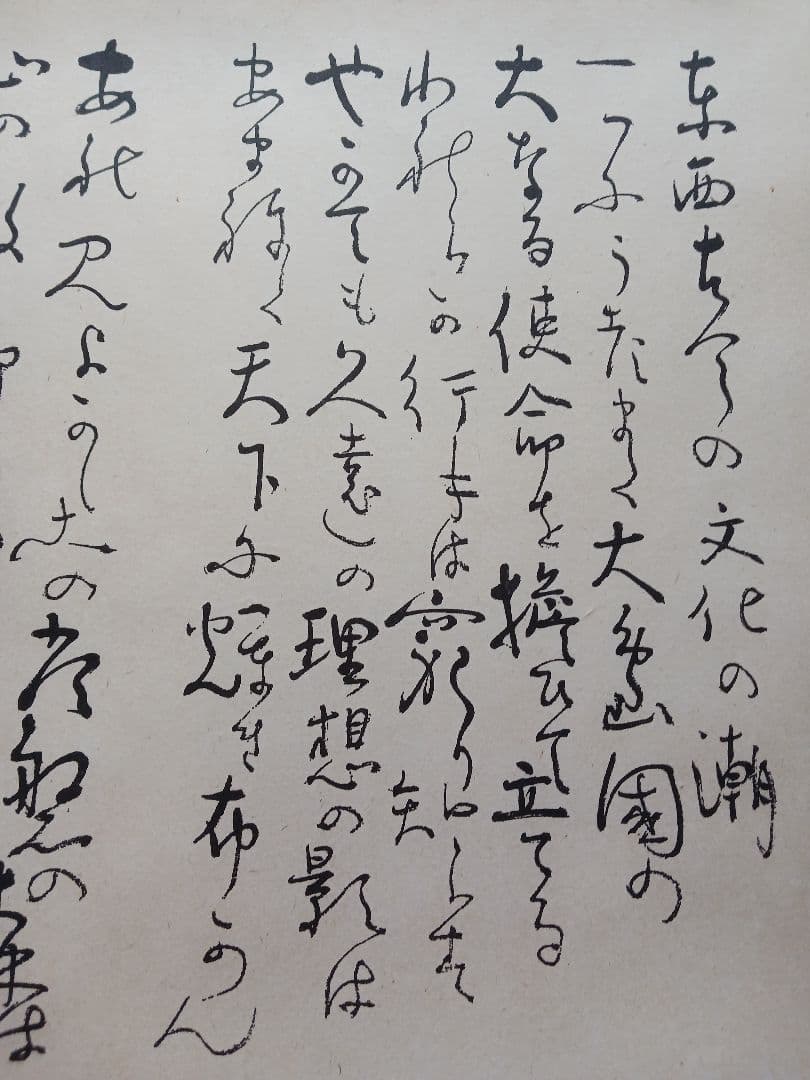 東西古今の文化の潮
一つにうずまく大島國の
大なる使命を擔ひて立てる
われらか行手は窮り知らす
やかても久遠の理想の影は
あまねく天下に輝き布かん
あれ見よかしこの常磐の